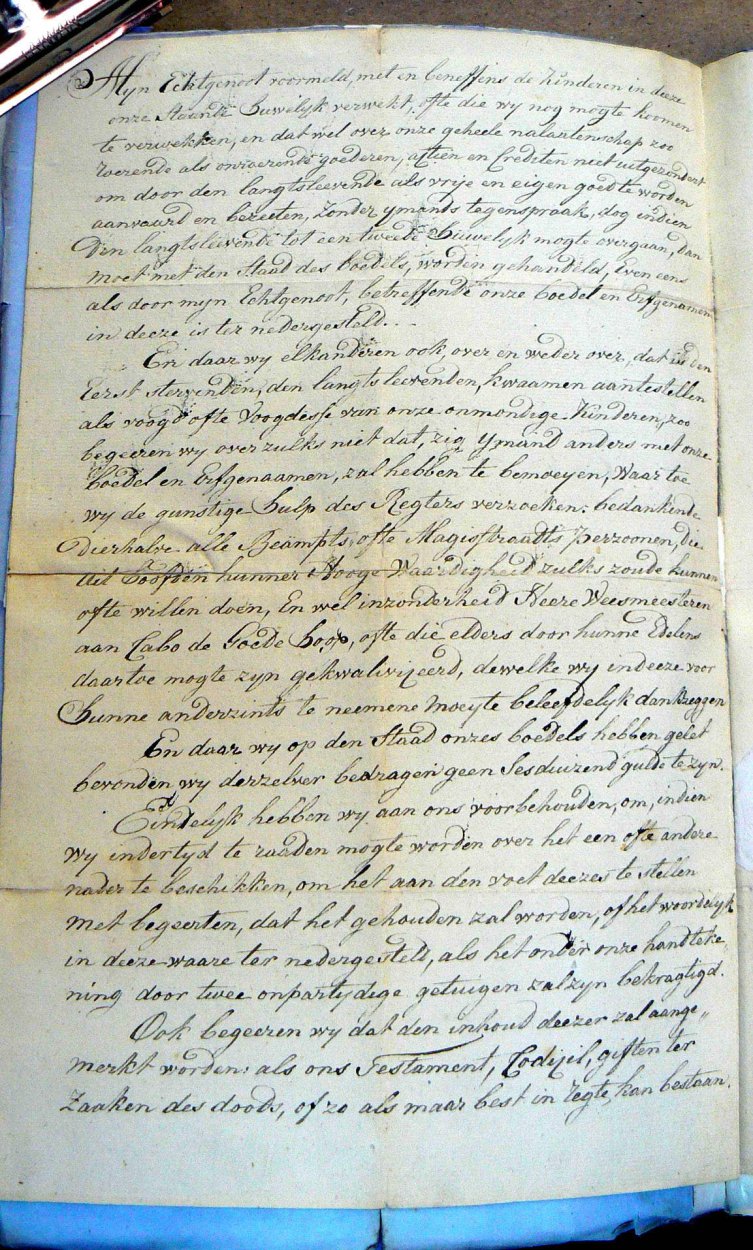 Mijn Echtgenoot voormeld, met en beneffens de Kinderen in deeze
onze Staande Huwelyk verwekt, ofte die wy nog mogte koomen
te verwekken, en dat wel over onze geheele nalaatenschap zoo
roerende als onroerende goederen, actien en Crediten niet uitgezondert
om door den langtsleevende als vrije en eigen goed te worden
aanvaard en bezeeten, zonder ymands tegenspraak, dog indien
Den langtsleevende tot een tweede Huwelyk mogte overgaan, dan
moet met den Staad des boedels, worden gehandeld, Even eens
als door myn Echtgenoot, betreffende onze boedel en Erfgenamen
in deeze is ter nedergesteld...
En daar wy elkanderen ook, over en weder over, dat is den
Eerst stervenden, den langts leevenden, kwaamen aantestellen
als voogd ofte Voogdesse van onze onmondige Kinderen, zoo
begeeren wy over zulks niet dat, zig ymand anders met onze
boedel en Erfgenaamen, zal hebben te bemoeyen, waar toe
wy de gunstige hulp des Regters verzoeken: bedankende
Dierhalve alle Beampts, ofte Magistraadts Perzoonen, die
uit hoofden hunner Hooge Waardigheid zulks zoude kunnen
ofte willen doen, En wel inzonderheid Heere Weesmeesteren
aan Cabo de Goede Hoop, ofte die elders door hunne Edelens
daartoe mogte zyn gekwalivizeerd, dewelke wy in deeze voor
hunne anderzints te neemene moeyte beleefdelyk dankzeggen
En daar wy op den Staad onzes boedels hebben gelet
bevonden wy derzelver bedragen geen Sesduizend gulde te zyn.
Eindelyk hebben wy aan ons voorbehouden, om, indien
wy indertyd te raaden mogte worden over het een ofte andere
nader te beschikken, om het aan den voet deezes te stellen
met begeerten, dat het gehouden zal worden, of het woordelyk
in deeze waare ter nedergesteld, als het onder onze handteke
ning door twee onpartydege getuigen zal zyn bekragtigd.
Ook begeeren wy dat den inhoud deezer zal aange„
merkt worden: als ons Testament, Codizil, giften ter
Zaaken des doods, of zo als maar best in regte, kan bestaan.